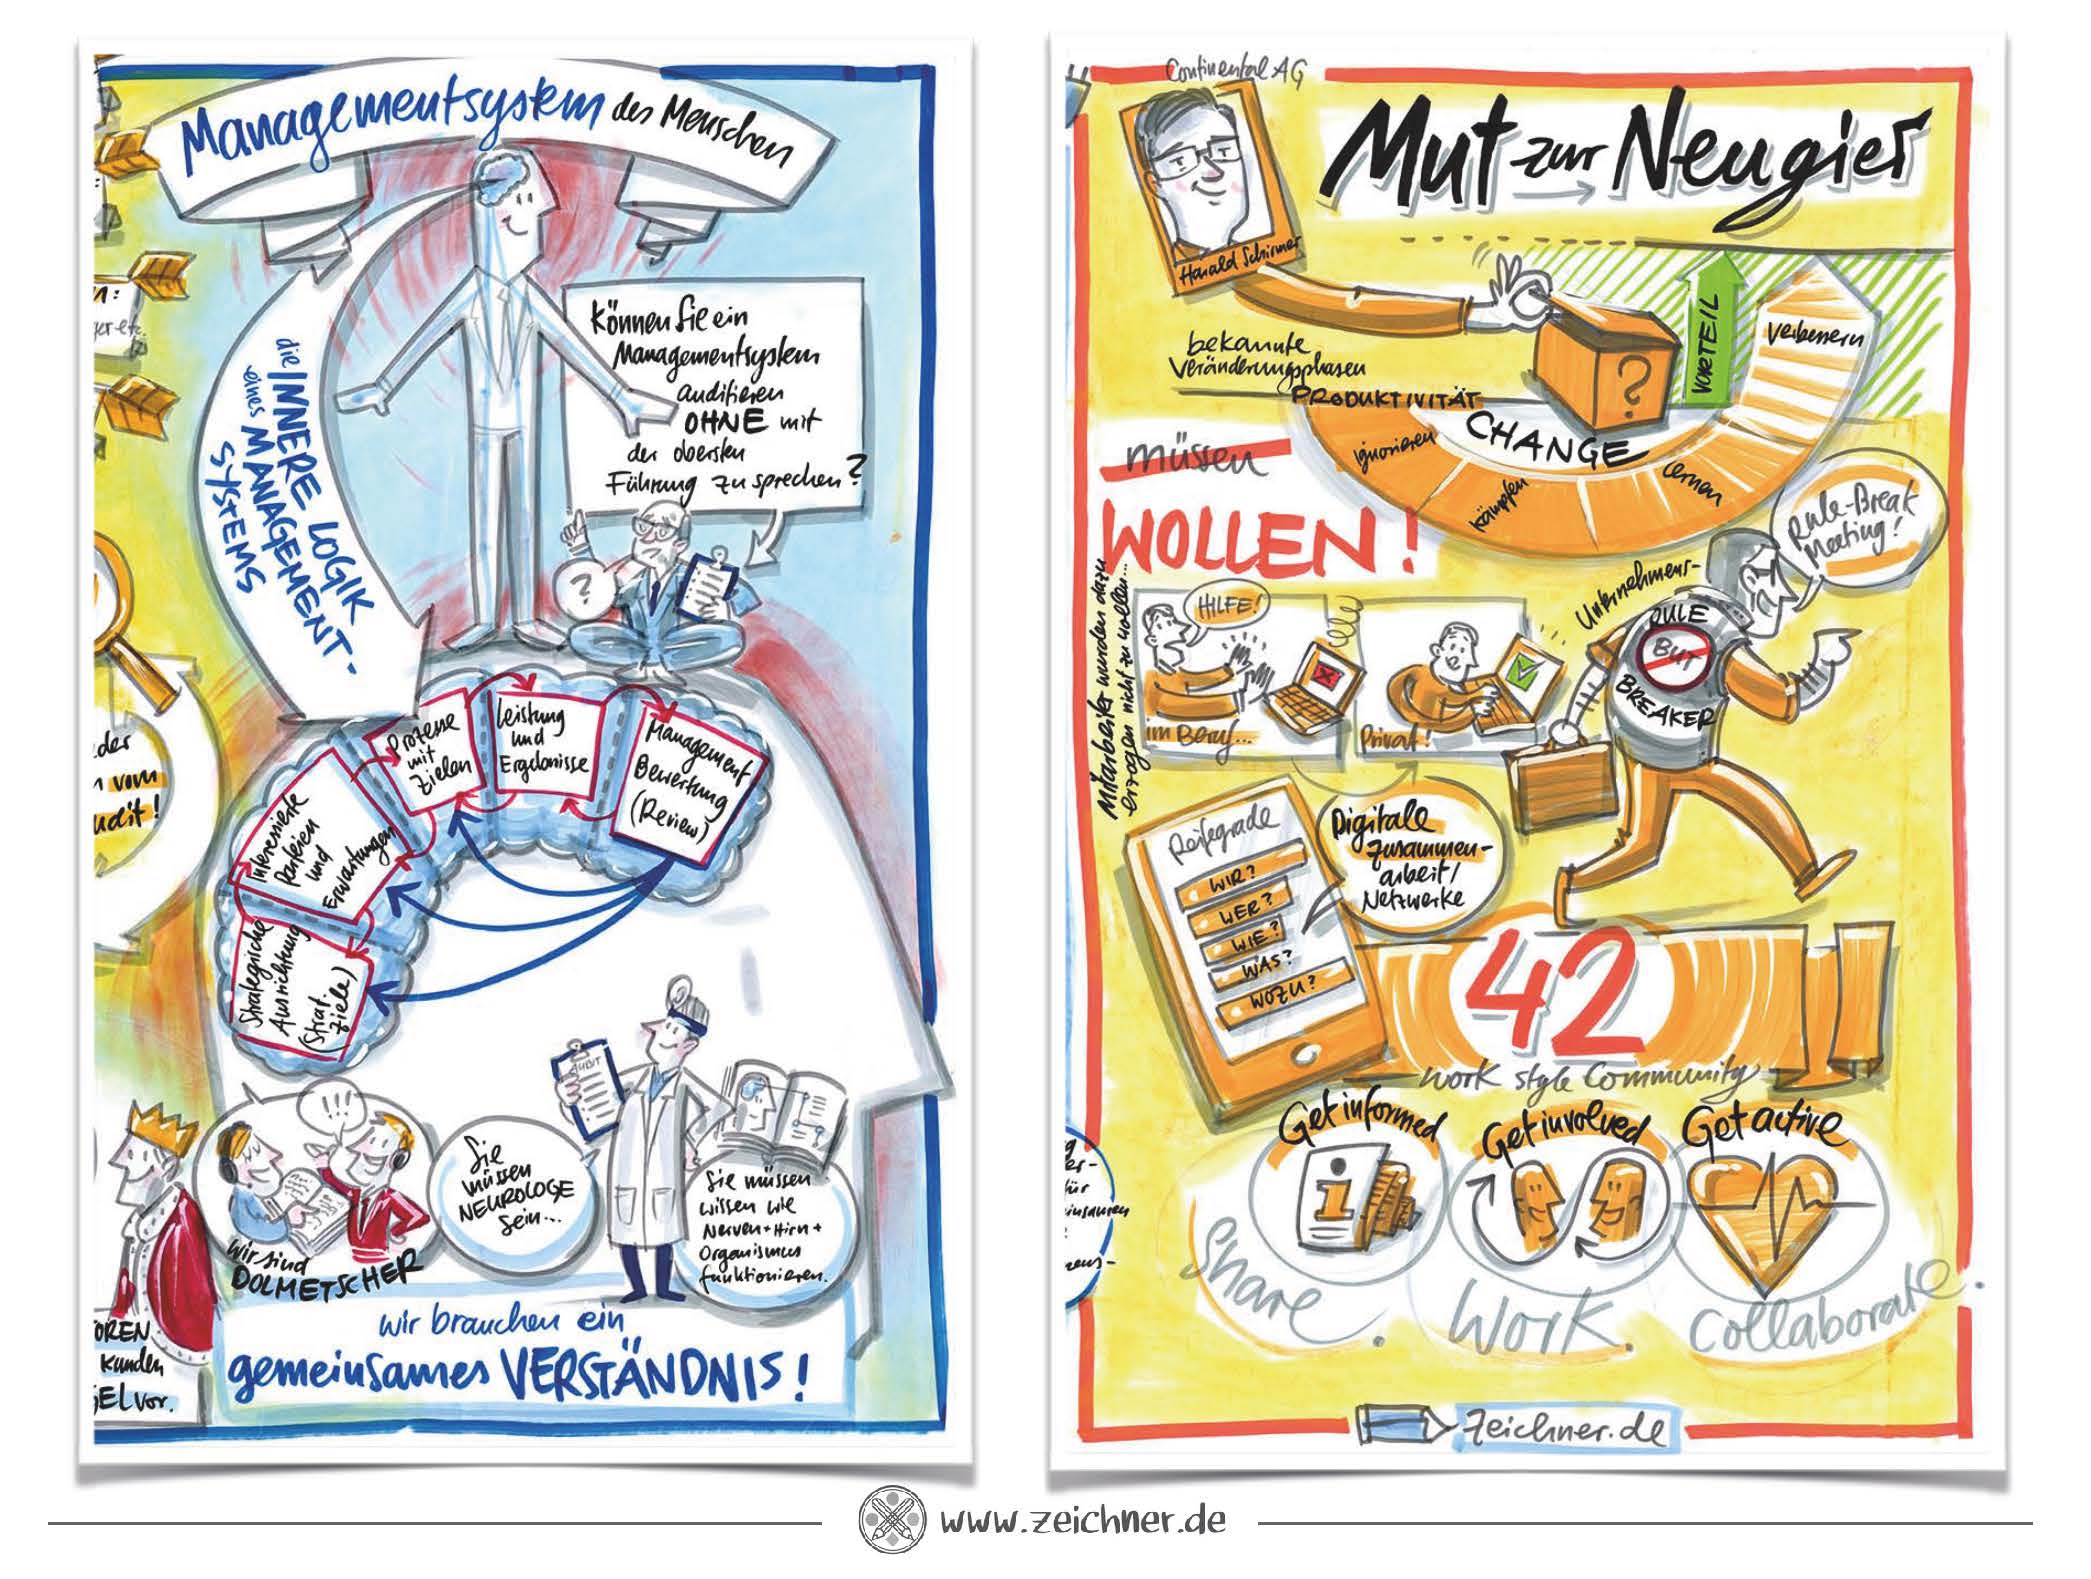 Managementsystem des Menschen
die INNERE LOGIK
eines MANAGEMENT-
SYSTEMS
Können Sie ein
Managementsystem
auditieren
OHNE mit
der obersten
Führung zu sprechen?
?
Prozesse
mit
Zielen
Leistung
und
Ergebnisse
Management
Bewertung
(Review)
Interessierte
Parteien
und
Erwartungen
Strategische
Ausrichtung
(Strat.
Ziele)
n:
ger etc.
der
n vom
udit!
!!!
wir sind
DOLMETSCHER
AUDIT
Sie
müssen
NEUROLOGE
sein...
Sie müssen
wissen wie
Nerven+Hirn+
Organismus
funktionieren.
wir brauchen ein
gemeinsames VERSTÄNDNIS!
OREN
Kunden
GEL vor.
Continental AG
Harald Schirmer
Mut zur Neugier
bekannte
Veränderungsphasen
PRODUKTIVITÄT
VORTEIL
?
CHANGE
ignorieren
kämpfen
lernen
verbessern
müssen
WOLLEN!
Mitarbeiter wurden dazu
erzogen nicht zu wollen...
HILFE!
im Beruf...
Privat!
Unternehmens-
RULE
BUT
BREAKER
Rule-Break
Meeting!
Reifegrade
WIR?
WER?
WIE?
WAS?
WOZU?
Digitale
Zusammen-
arbeit/
Netzwerke
42
Work style Community
Get informed
i
Get involved
Get active
Share.
Work.
Collaborate.
er-
für
einsamen
zens-
zeichner.de
www.zeichner.de